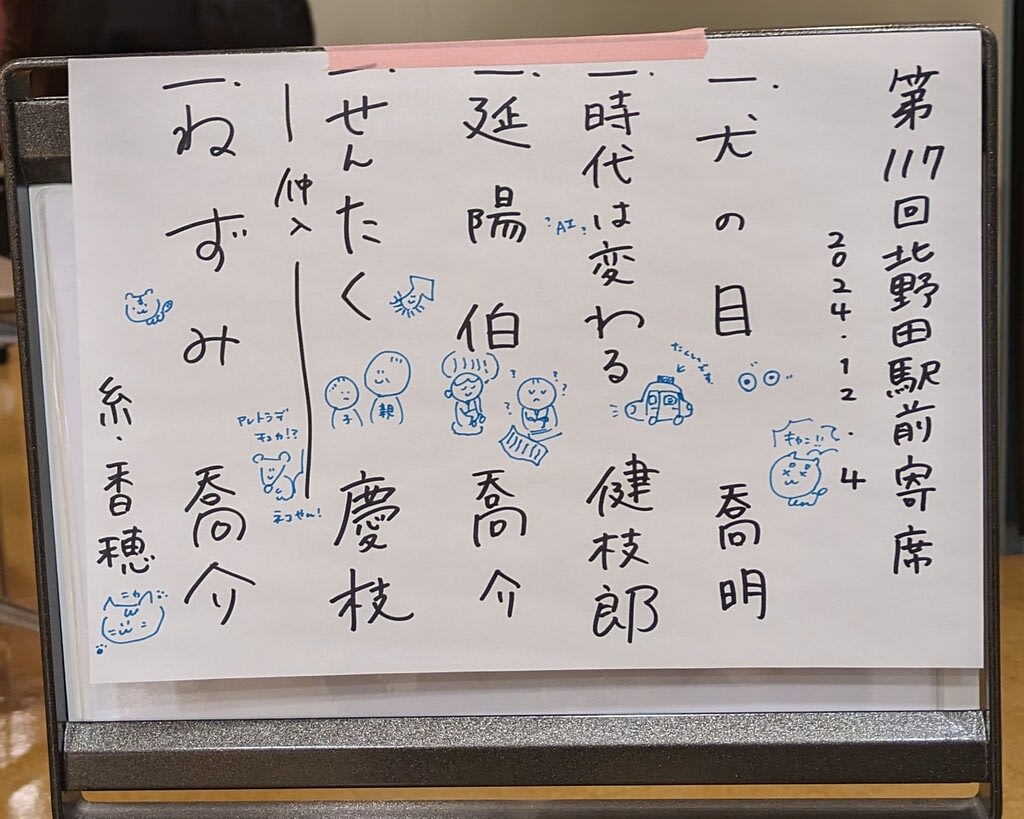 第117回北野田駅前寄席
2024.12.4
一、犬の目 喬明
キャン!!て
一、時代は変わる 健枝郎
たくしーです。
?AI?
一、延陽伯 喬介
一、せんたく 慶枝
子
親
ー仲入ー
一、ねずみ 喬介
アレトラデ
ネコやん!
糸・香穂